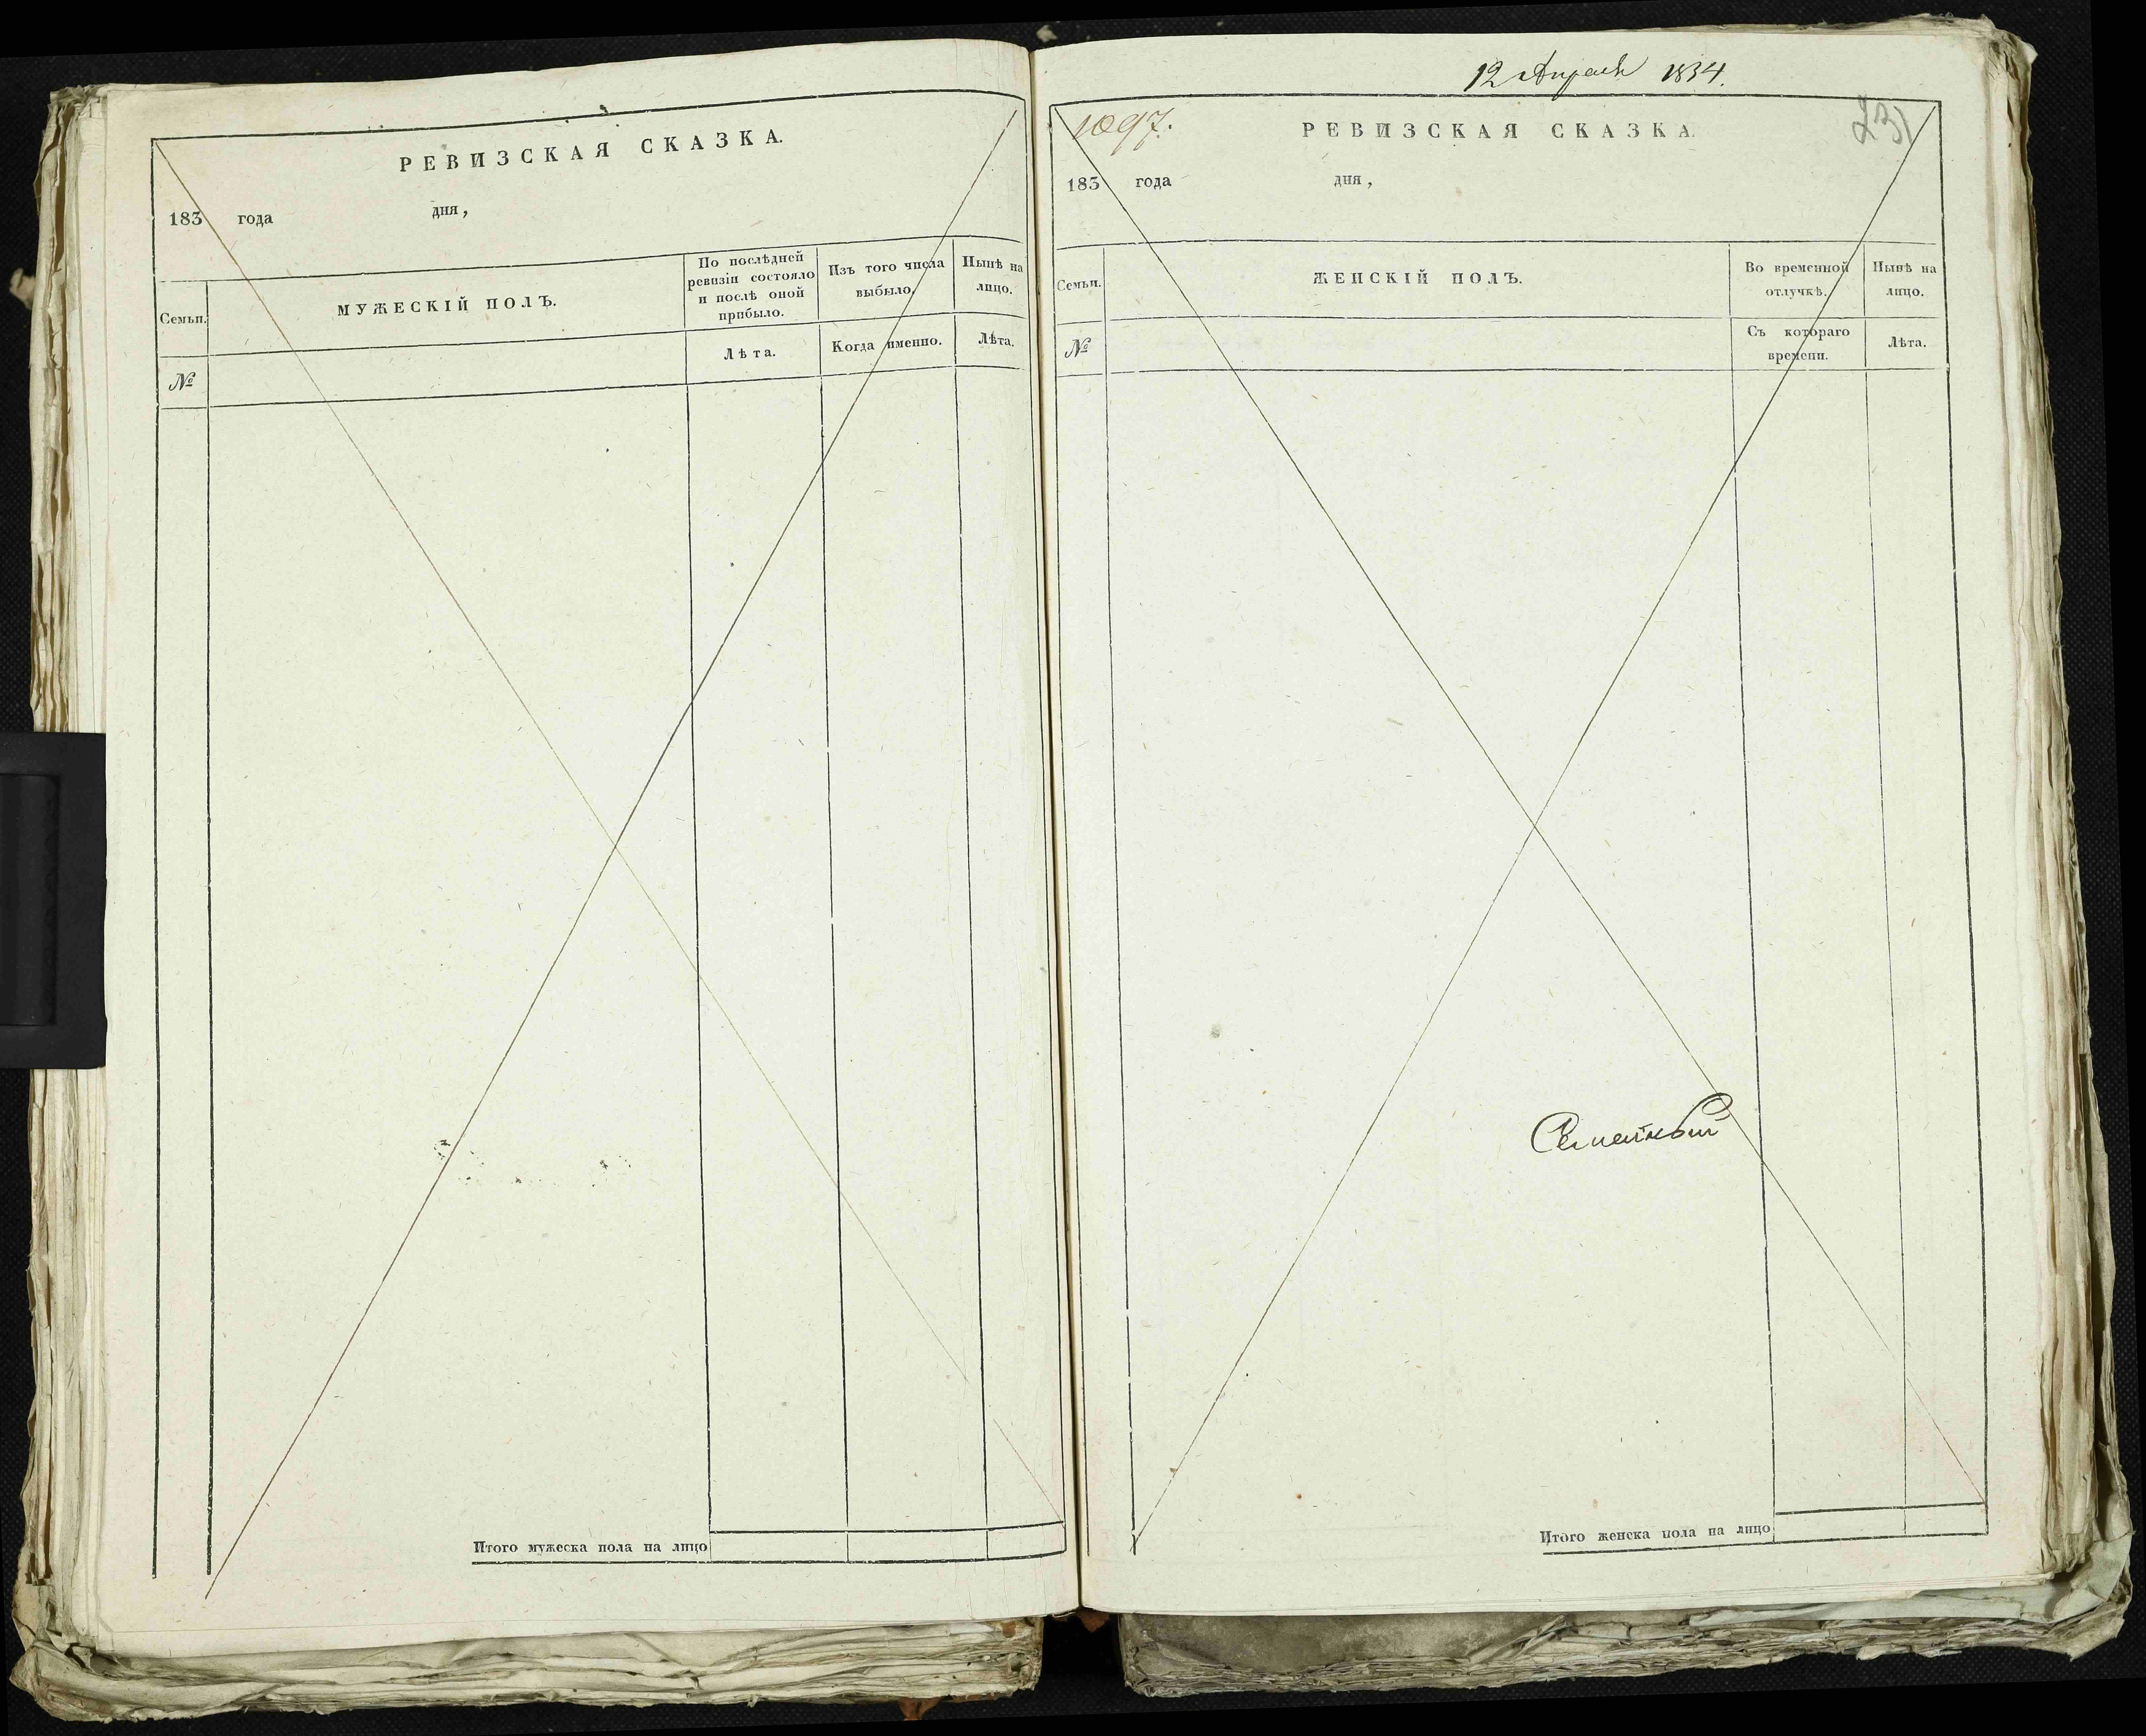 РЕВИЗСКАЯ СКАЗКА.
183 года дня,
Семьи.
МУЖЕСКІЙ ПОЛЪ.
По послѣдней
ревизіи состояло
и послѣ оной
прибыло.
Изъ того числа
выбыло.
Нынѣ на
лицо.
№
Лѣта.
Когда именно.
Лѣта.
Итого мужеска пола на лицо
12 Апреля 1834.
1097.
231
РЕВИЗСКАЯ СКАЗКА
183 года дня,
Семьи.
ЖЕНСКІЙ ПОЛЪ.
Во временной
отлучкѣ.
Нынѣ на
лицо.
№
Съ котораго
времени.
Лѣта.
Итого женска пола на лицо